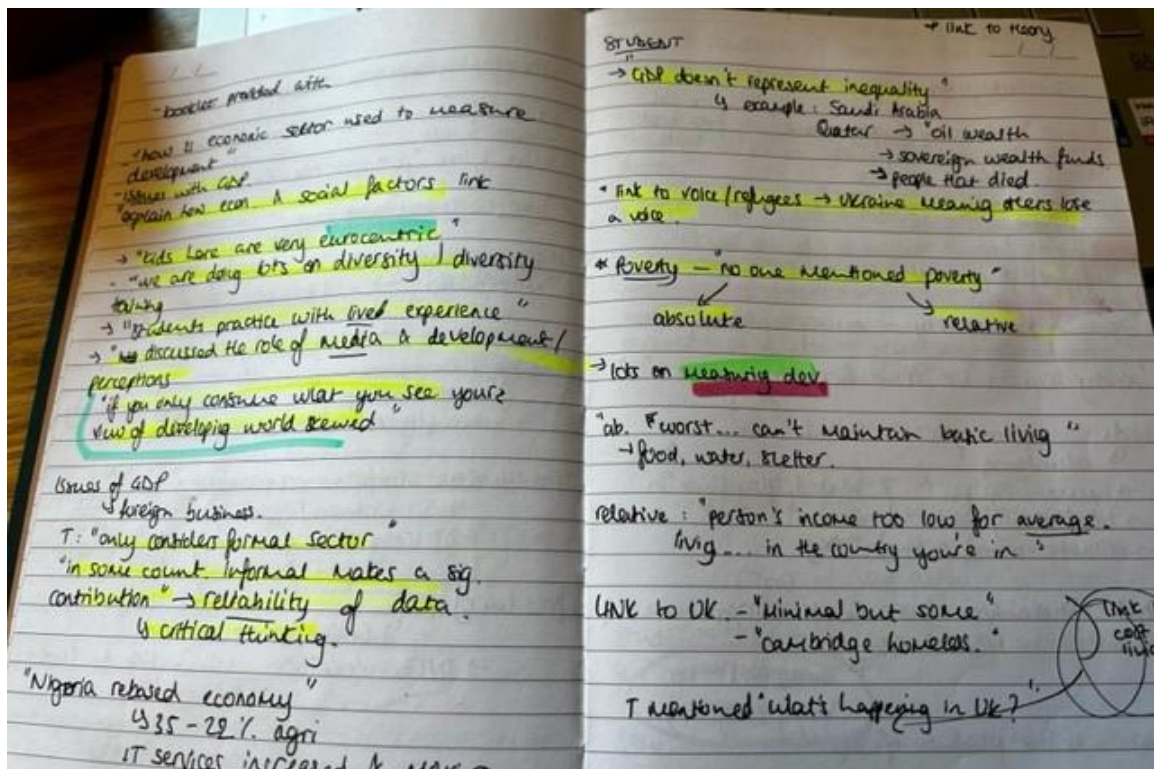 - booklet provided with
- "how is economic sector used to measure
development"
- issues with GDP.
"explain how econ. & social factors link
→ "kids here are very eurocentric"
- "we are doing lots on diversity / diversity
training
→ "students practice with lived experience"
→ " discussed the role of media & development/
perceptions
"if you only consume what you see your
view of developing world skewed"
Issues of GDP
↳ foreign business.
T: "only considers formal sector"
"in some count. informal makes a sig.
contribution" → reliability of data.
↳ critical thinking.
"Nigeria rebased economy"
↳ 35 - 22% agri
IT services increased &
→ link to theory
STUDENT
→ "GDP doesn't represent inequality"
↳ example: Saudi Arabia
Qatar → "oil wealth
→ sovereign wealth funds.
→ people that died.
* link to voice/refugees → Ukraine meaning others lose
a voice.
* Poverty - "no one mentioned poverty"
absolute relative
→ lots on measuring dev
"ab. worst... can't maintain basic living"
→ food, water, shelter.
relative: "person's income too low for average.
living... in the country you're in"
LINK to UK - "minimal but some"
- "cambridge homeless."
link
cost
T mentioned "what's happening in UK?"